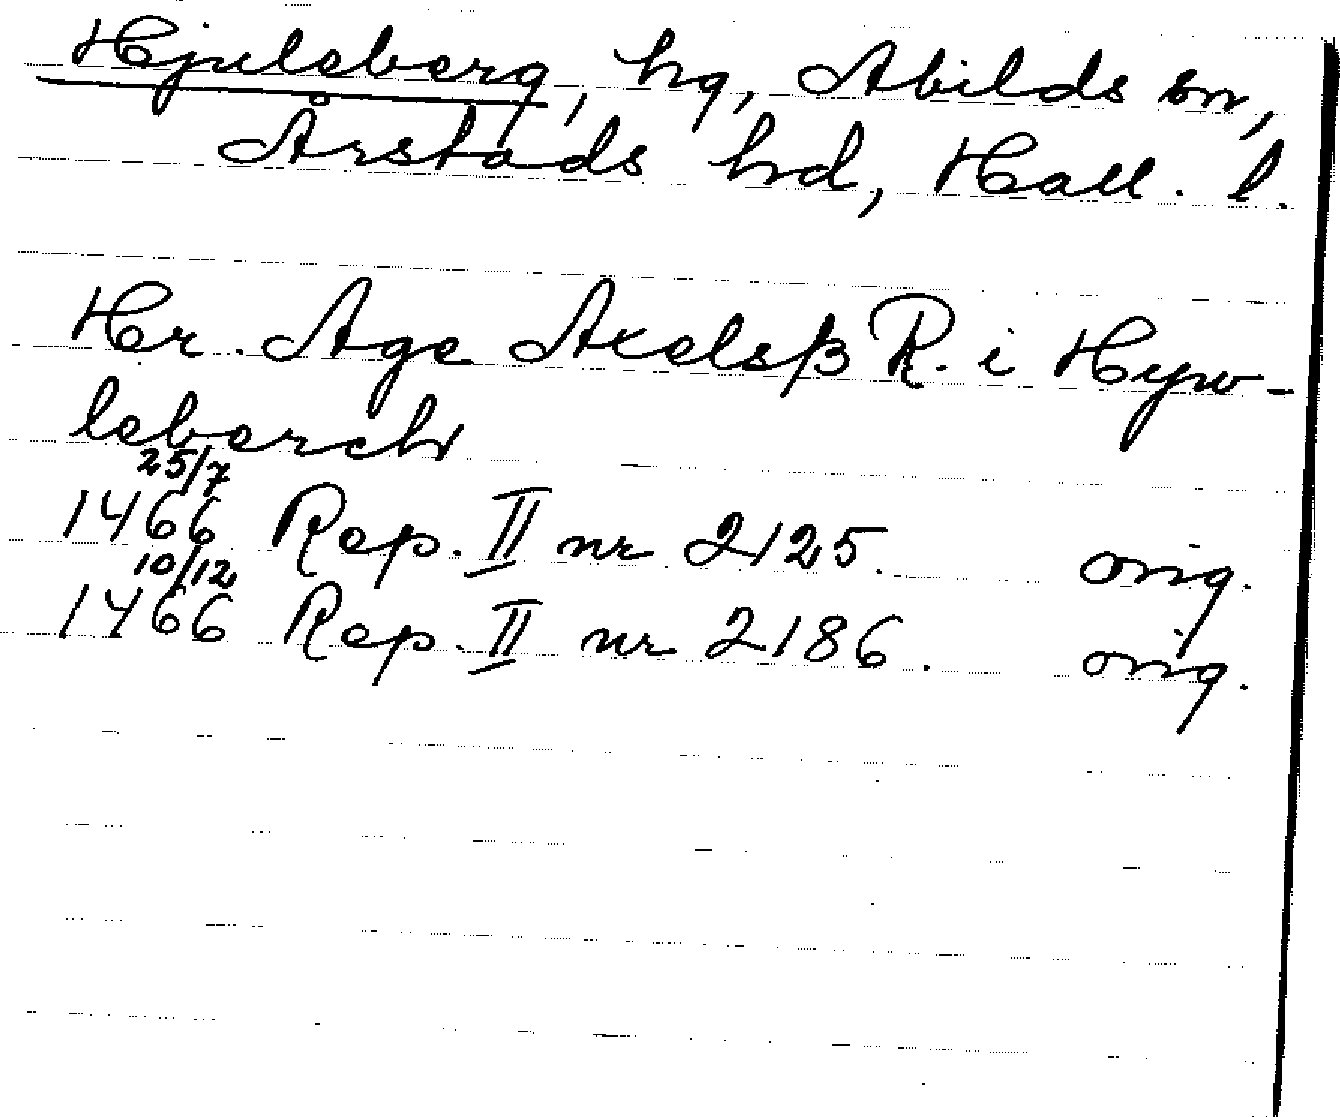 Hjuleberg, hg, Abilds sn,
Årstads hd, Hall. l.
Hr. Age Axelsß R. i Hyw-
leberch
25/7
1466 Rep. II nr 2125. orig.
10/12
1466 Rep. II nr 2186. orig.